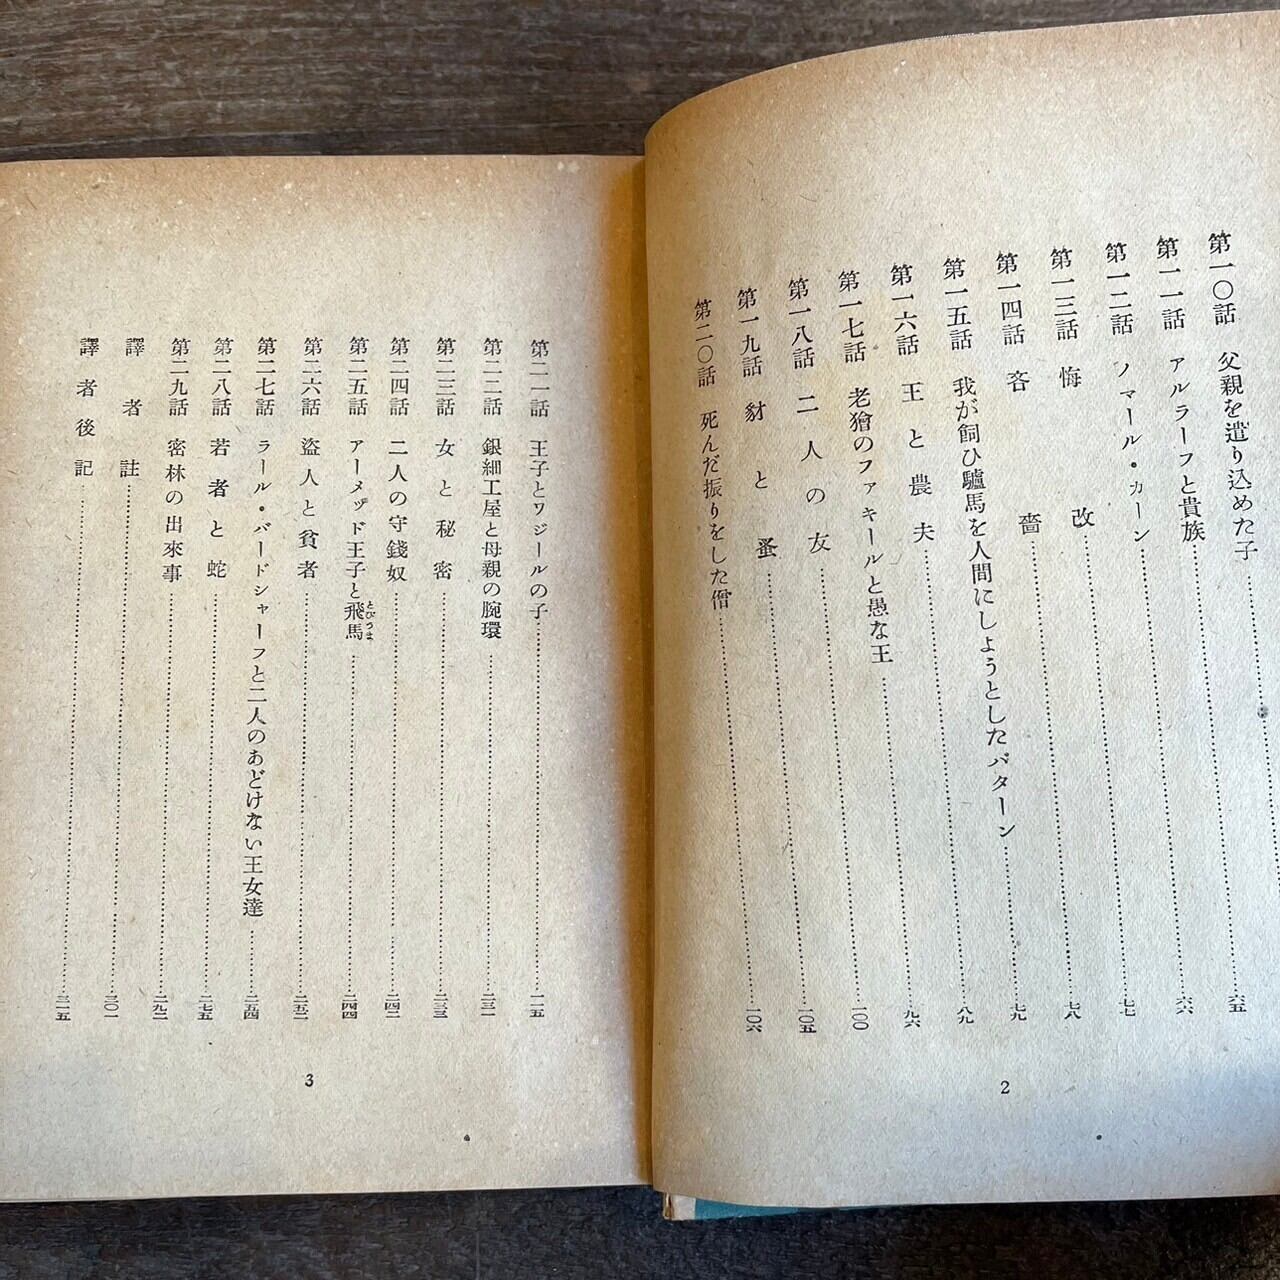 第一〇話 父親を遣り込めた子
第一一話 アルラーフと貴族 六五
第一二話 ノマール・カーン 六六
第一三話 悔改 七七
第一四話 吝嗇 七八
第一五話 我が飼ひ驢馬を人間にしようとしたパターン 七九
第一六話 王と農夫 八九
第一七話 老獪のファキールと愚な王 九六
第一八話 二人の友 一〇〇
第一九話 豺と蚤 一〇五
第二〇話 死んだ振りをした僧 一〇六
2
第二一話 王子とワジールの子 一一五
第二二話 銀細工屋と母親の腕環 二三一
第二三話 女と秘密 二三三
第二四話 二人の守錢奴 二四二
第二五話 アーメッド王子と飛馬とびうま 二四四
第二六話 盗人と貧者 二五二
第二七話 ラール・バードシャーフと二人のあどけない王女達 二五四
第二八話 若者と蛇 二七五
第二九話 密林の出來事 二九二
譯者註 三〇一
譯者後記 三一五
3